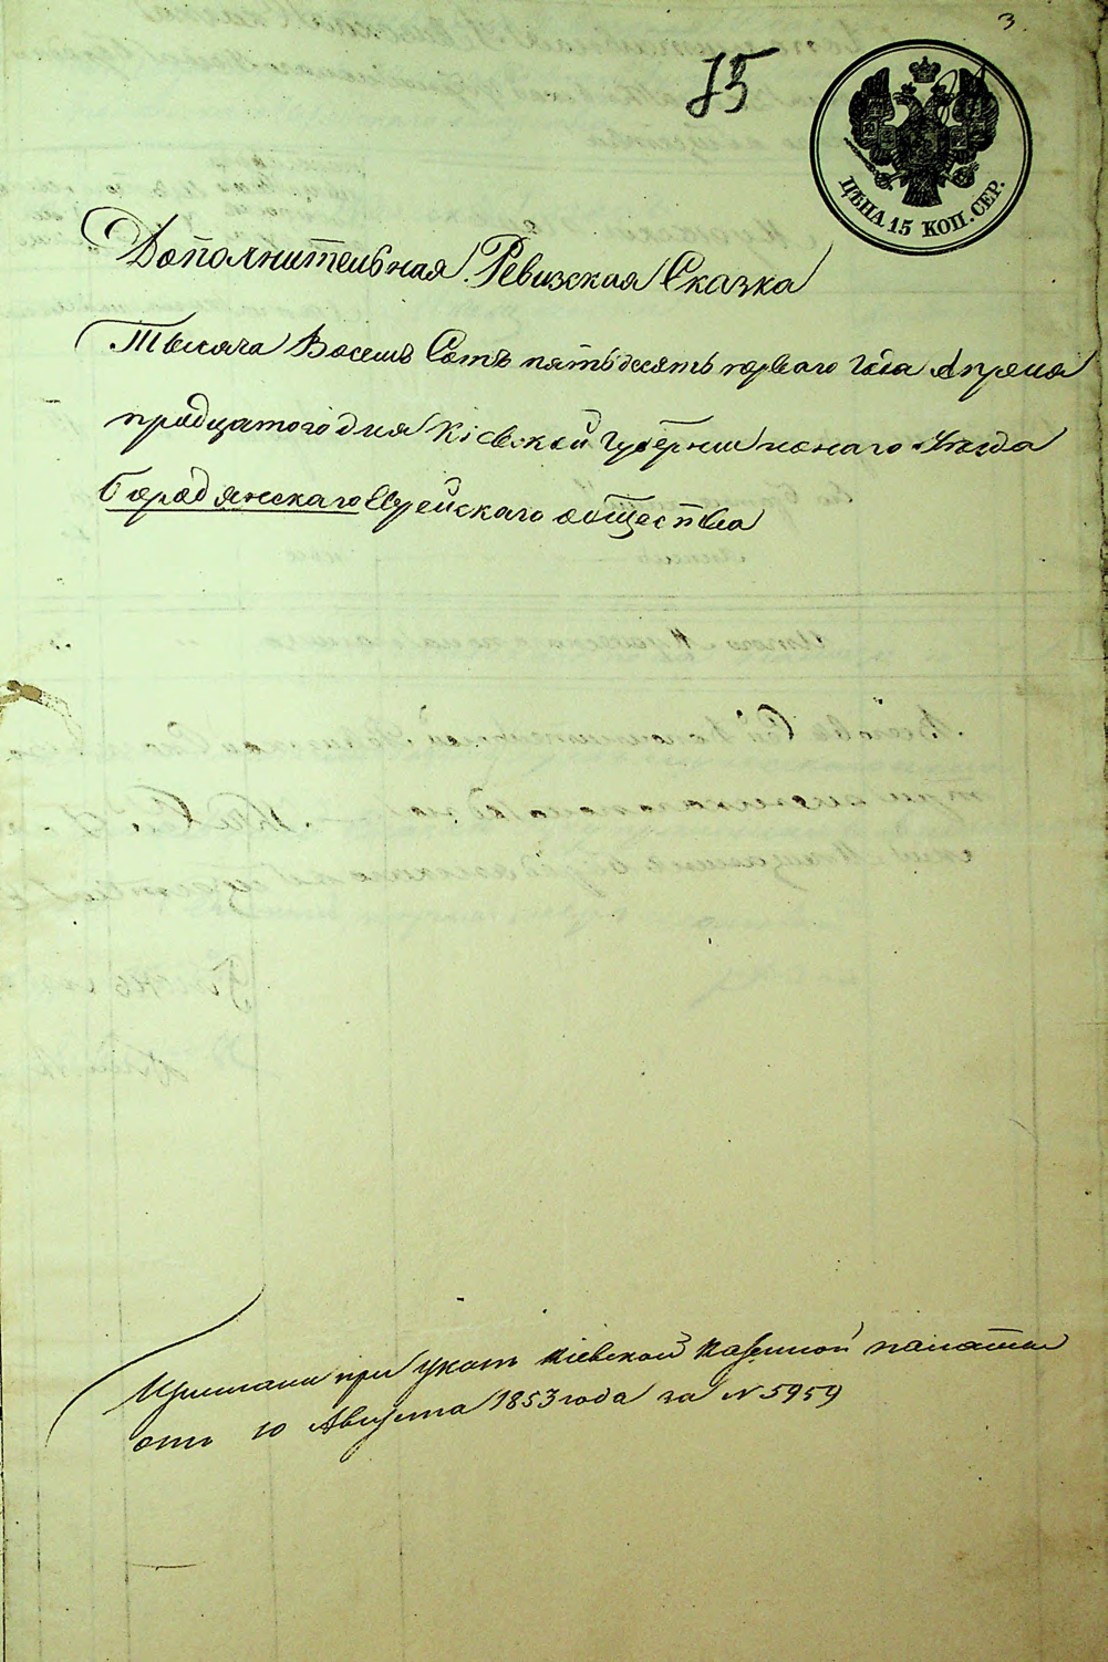 3.
75
ЦѢНА 15 КОП. СЕР.
Дополнительная Ревизская Сказка
Тысяча Восемь Сотъ пятьдесятъ перваго Года Апреля
тридцатого дня Кіевской Губерніи тогожъ Уѣзда
Бородянскаго Еврейскаго общества
при указѣ Кіевской Казенной палаты
отъ 10 Августа 1853 года за N 5959